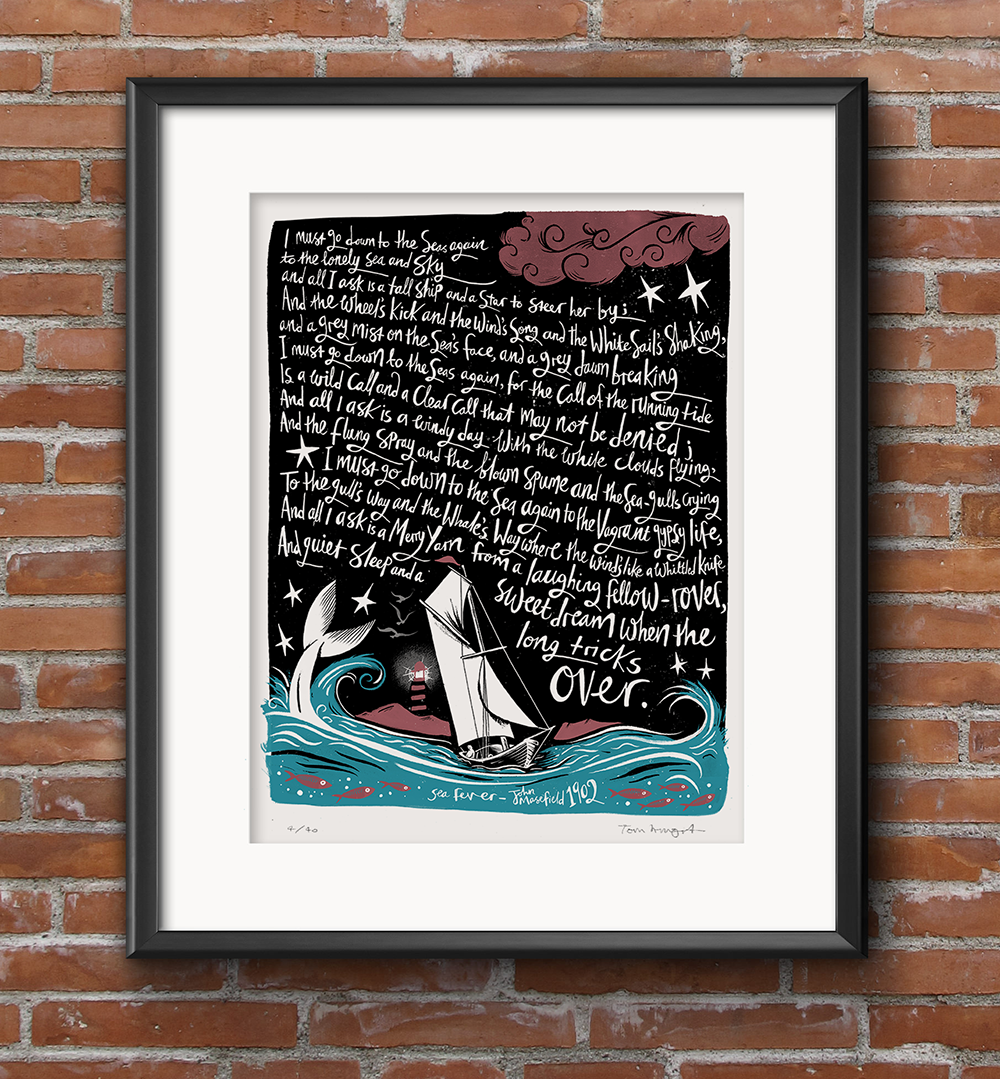 I must go down to the Seas again
to the lonely sea and SKY
and all I ask is a tall ship and a Star to steer her by;
And the Wheel's Kick and the Wind's Song and the White Sail's Shaking,
and a grey mist on the Sea's face, and a grey dawn breaking
I must go down to the Seas again, for the Call of the running tide
Is a wild Call and a Clear Call that May not be denied;
And all I ask is a windy day With the white clouds flying,
And the flung Spray and the blown Spume and the Sea-gulls Crying
I must go down to the Sea again to the Vagrant gypsy life,
To the gull's Way and the Whale's Way where the winds like a Whittled Knife
And all I ask is a Merry Yarn from a laughing fellow-rover,
And quiet Sleep and a sweet dream When the
long tricks
over.
Sea Fever - John Masefield 1902
4/40